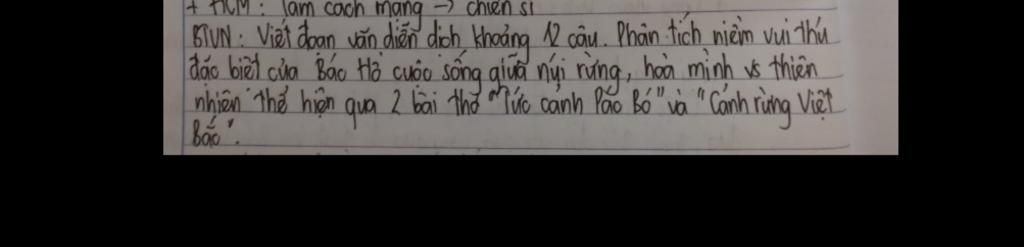 + HCM: làm cách mạng → chiến sĩ
BTVN: Viết đoạn văn diễn dịch khoảng 12 câu. Phân tích niềm vui thú
đặc biệt của Bác Hồ cuộc sống giữa núi rừng, hoà mình vs thiên
nhiên thể hiện qua 2 bài thơ "Tức cảnh Pác Bó" và "Cảnh rừng Việt
Bắc".